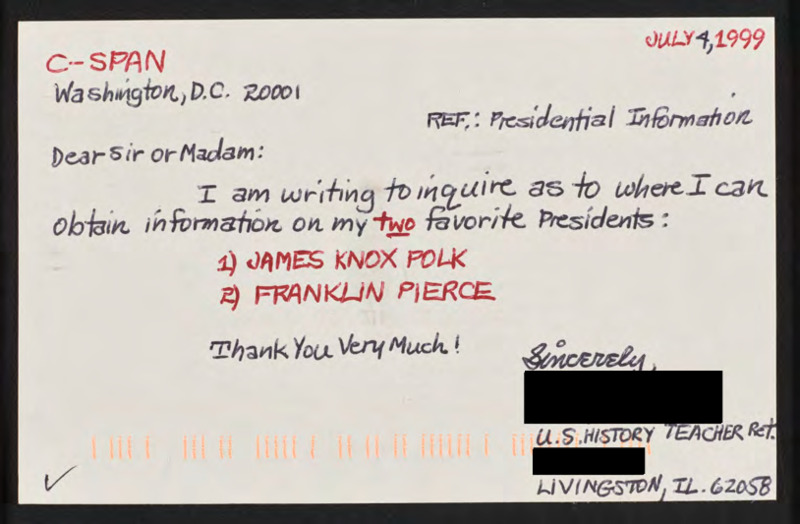 JULY 4, 1999
C-SPAN
Washington, D.C. 20001
REF.: Presidential Information
Dear Sir or Madam:
I am writing to inquire as to where I can
obtain information on my two favorite Presidents:
1) JAMES KNOX POLK
2) FRANKLIN PIERCE
Thank You Very Much!
Sincerely,
U.S. HISTORY TEACHER Ret.
LIVINGSTON, IL. 62058